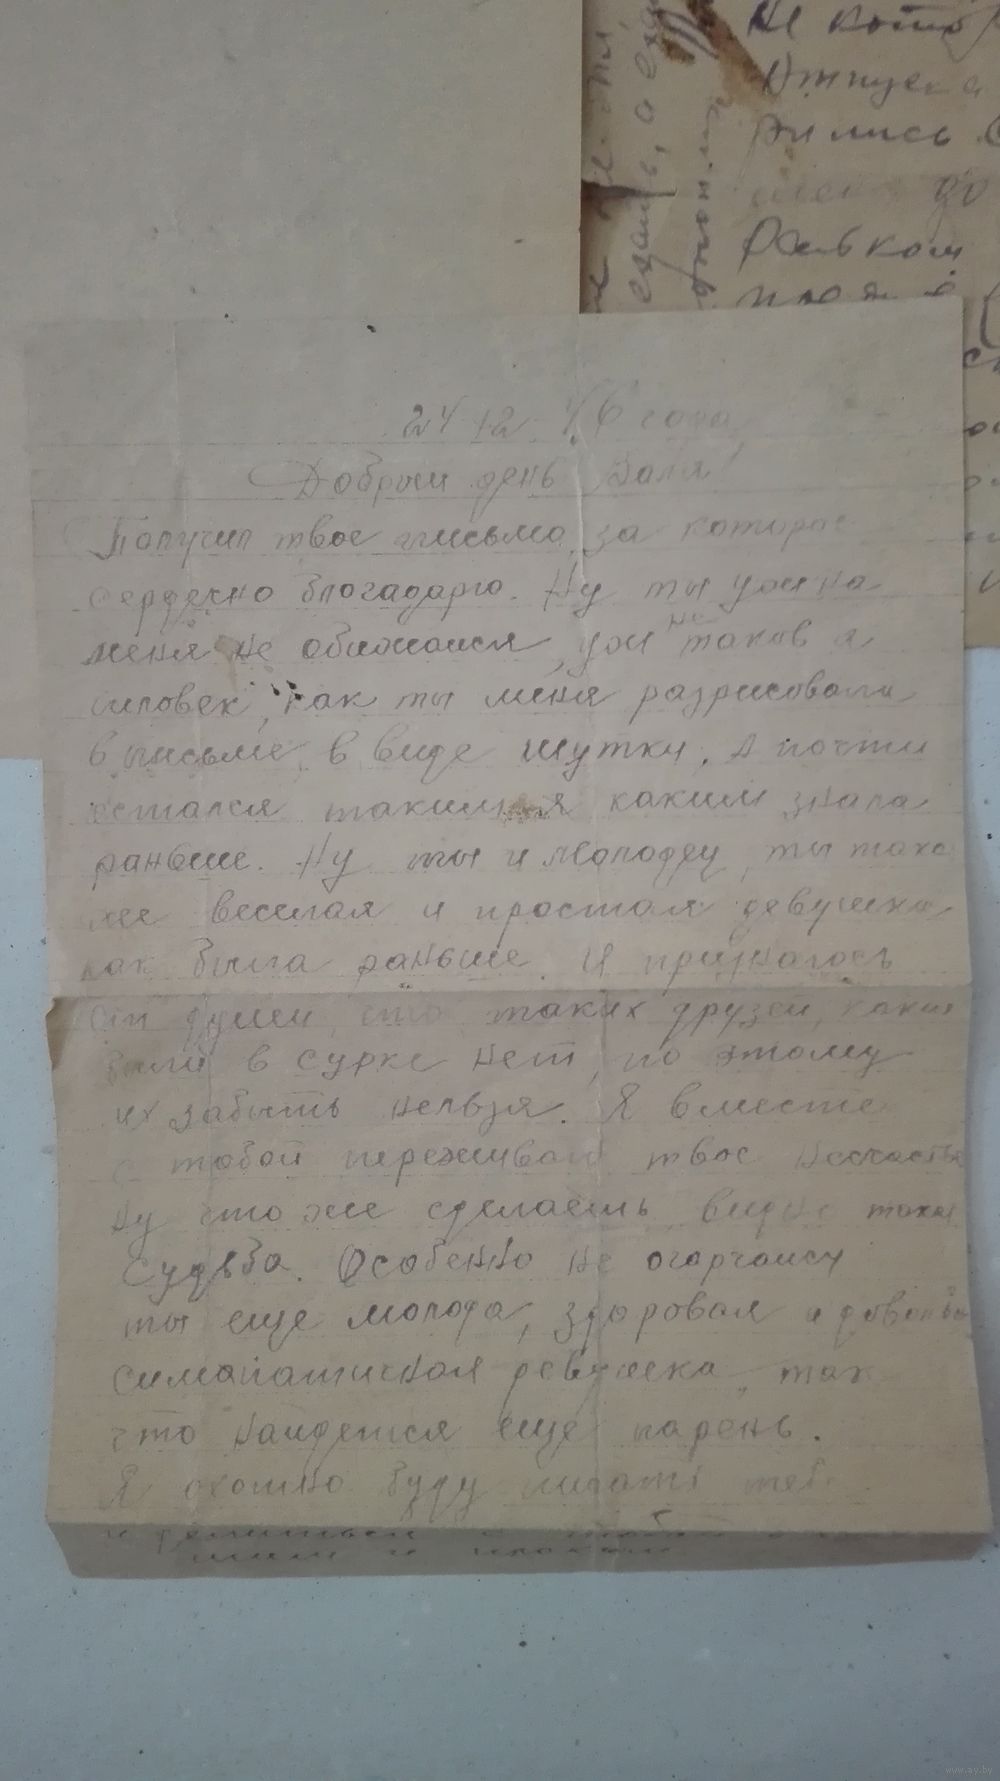 не котор
Отпуска
рились
Райком
24 12 46 года
Добрый день Валя!
Получил твое письмо, за которое
сердечно благадарю. Ну ты уж на
меня не обижайся, уж не таков я
человек, как ты меня разрисовала
в письме, в виде шутки. А почти
остался таким я каким знала
раньше. Ну ты и молодец, ты така
же веселая и простая девушка,
как была раньше. И признаюсь
от души, что таких друзей, какие
были в Сурке нет, по этому
их забыть нельзя. Я вместе
с тобой переживаю твое несчастье
Ну что же сделаешь, видно такая
судьба. Особенно не огорчайся
ты еще молода, здоровая и довольно
симапатисная девушка, так
что найдется еще парень.
Я охотно буду писать тебе
и делиться с тобой
www.ay.by